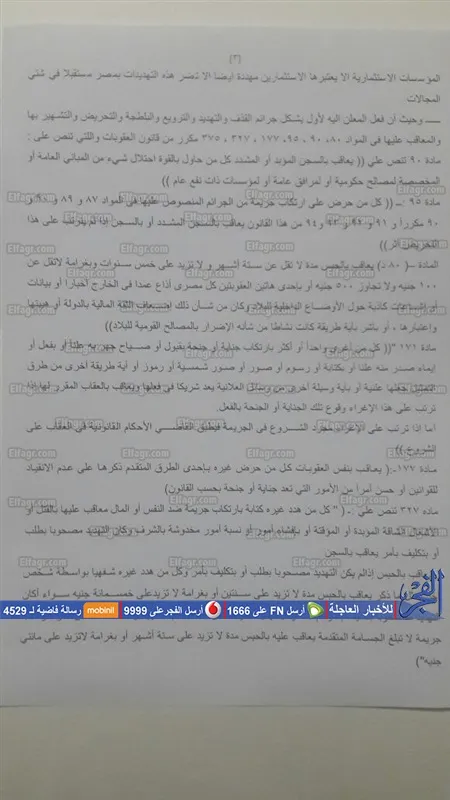 (٣)
المؤسسات الاستثمارية الا يعتبرها الاستثمارين مهددة أيضا الا تضر هذه التهديدات بمصر مستقبلا في شتي
المجالات
ــــ وحيث أن فعل المعلن اليه لأول يشكل جرائم القذف والتهديد والترويع والبلطجة والتحريض والتشهير بها
والمعاقب عليها في المواد ٨٠، ٩٠، ٩٥، ١٧٧، ٣٢٧، ٣٧٥ مكرر من قانون العقوبات واللتي تنص على :
مادة ٩٠ تنص علي (( يعاقب بالسجن المؤبد أو المشدد كل من حاول بالقوة احتلال شيء من المباني العامة أو
المخصصة لمصالح حكومية أو لمرافق عامة أو لمؤسسات ذات نفع عام ))
مادة ٩٥ :ـ (( كل من حرض على ارتكاب جريمة من الجرائم المنصوص عليها في المواد ٨٧ و ٨٩ و ٩٠ و
٩٠ مكررا و ٩١ و ٩٢ و ٩٣ و ٩٤ من هذا القانون يعاقب بالسجن المشدد أو بالسجن إذا لم يترتب على هذا
التحريض أثر ))
المادة –( ٨٠ د) يعاقب بالحبس مدة لا تقل عن ستة أشهر و لا تزيد على خمس سنوات وبغرامة لاتقل عن
١٠٠ جنيه ولا تجاوز ٥٠٠ جنيه أو بإحدى هاتين العقوبتين كل مصرى أذاع عمدا فى الخارج أخبارا أو بيانات
أو إشاعات كاذبة حول الأوضاع الداخلية للبلاد وكان من شأن ذلك إضعاف الثقة المالية بالدولة أو هيبتها
وإعتبارها ، أو باشر بأية طريقة كانت نشاطا من شأنه الإضرار بالمصالح القومية للبلاد))
مادة ١٧١ "(( كل من أغرى واحداً أو أكثر بارتكاب جناية أو جنحة بقول أو صياح جهر به علنا أو بفعل أو
إيماء صدر منه علنا أو بكتابة أو رسوم أو صور أو صور شمسية أو رموز أو أية طريقة أخرى من طرق
التمثيل جعلها علنية أو بأية وسيلة أخرى من وسائل العلانية يعد شريكا فى فعلها ويعاقب بالعقاب المقرر لها إذا
ترتب على هذا الإغراء وقوع تلك الجناية أو الجنحة بالفعل.
أما اذا ترتب على الإغراء مجرد الشروع فى الجريمة فيطبق القاضى الأحكام القانونية فى العقاب على
الشروع ))
مادة ١٧٧-:( يعاقب بنفس العقوبات كل من حرض غيره بإحدى الطرق المتقدم ذكرها على عدم الانقياد
للقوانين أو حسن أمرا من الأمور التى تعد جناية أو جنحة بحسب القانون)
ماده ٣٢٧ تنص علي :ـ ( " كل من هدد غيره كتابة بارتكاب جريمة ضد النفس أو المال معاقب عليها بالقتل أو
الأشغال الشاقة المؤبدة أو المؤقتة أو بإفشاء أمور أو نسبة أمور مخدوشة بالشرف وكان التهديد مصحوبا بطلب
أو بتكليف بأمر يعاقب بالسجن
ويعاقب بالحبس إذالم يكن التهديد مصحوبا بطلب أو بتكليف بأمر وكل من هدد غيره شفهيا بواسطة شخص
ذكر يعاقب بالحبس مدة لا تزيد على سنتين أو بغرامة لا تزيدعلى خمسمائة جنيه سواء أكان
الفجر للأخبار العاجلة أرسل FN على 1666 أرسل الفجرعلى 9999 mobinil رسالة فاضية لـ 4529
جريمة لا تبلغ الجسامة المتقدمة يعاقب عليه بالحبس مدة لا تزيد على ستة أشهر أو بغرامة لاتزيد على مائتي
جنيه")
Elfagr.com